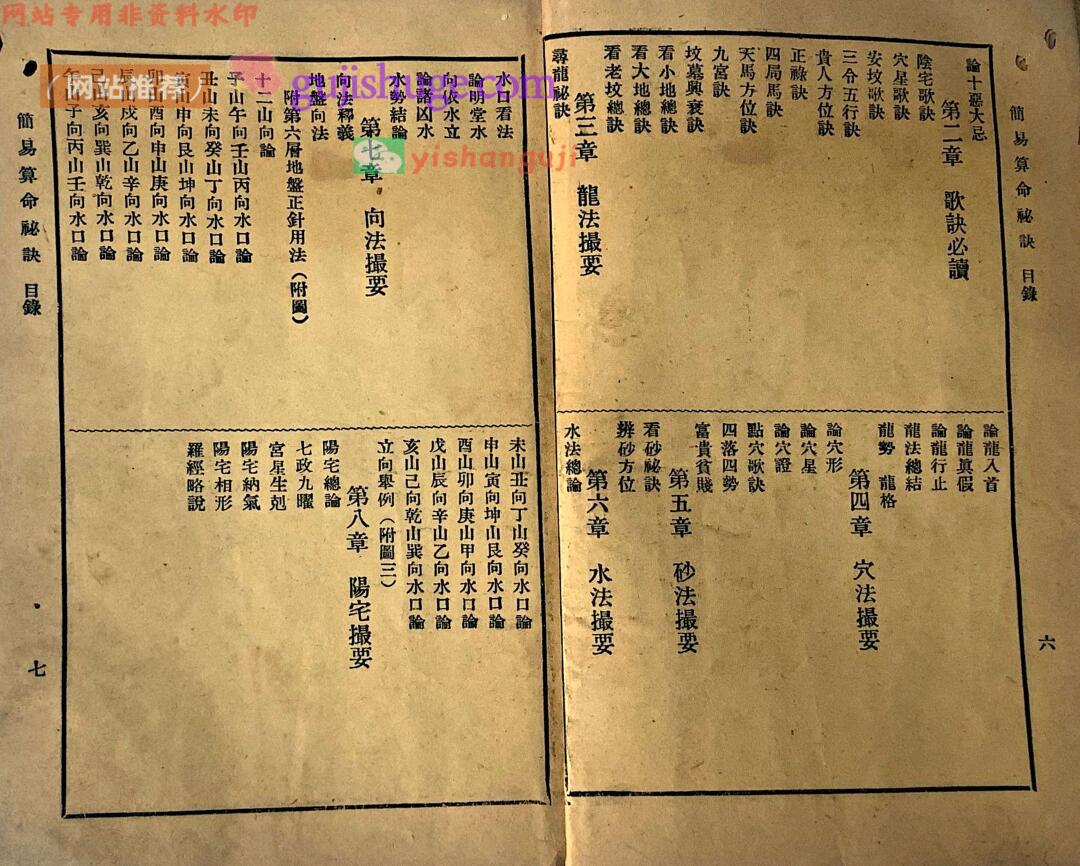 网站专用非资料水印
簡易算命祕訣 目錄
六
論十惡大忌
第二章 歌訣必讀
陰宅歌訣
穴星歌訣
安墳歌訣
三合五行訣
貴人方位訣
正祿訣
四局馬訣
天馬方位訣
九宮訣
墳墓興衰訣
看小地總訣
看大地總訣
看老坟總訣
第三章 龍法撮要
尋龍祕訣
論龍入首
論龍眞假
論龍行止
龍法總結
龍勢 龍格
第四章 穴法撮要
論穴形
論穴星
論穴證
點穴歌訣
四落四勢
富貴貧賤
第五章 砂法撮要
看砂祕訣
辨砂方位
第六章 水法撮要
水法總論
水口看法
論明堂水
向收水立
論諸凶水
水勢結論
第七章 向法撮要
向法釋義
地盤向法
附第六層地盤正針用法(附圖)
十二山向論
子山午向壬山丙向水口論
丑山未向癸山丁向水口論
申向艮山坤向水口論
卯酉向甲山庚向水口論
戌向乙山辛向水口論
亥向巽山乾向水口論
子向丙山壬向水口論
未山丑向丁山癸向水口論
申山寅向坤山艮向水口論
酉山卯向庚山甲向水口論
戌山辰向辛山乙向水口論
亥山巳向乾山巽向水口論
立向舉例(附圖三)
第八章 陽宅撮要
陽宅總論
七政九曜
宮星生剋
陽宅納氣
陽宅相形
羅經略說
簡易算命祕訣 目錄
七
网站推荐
gujishuge.com
yishanguji